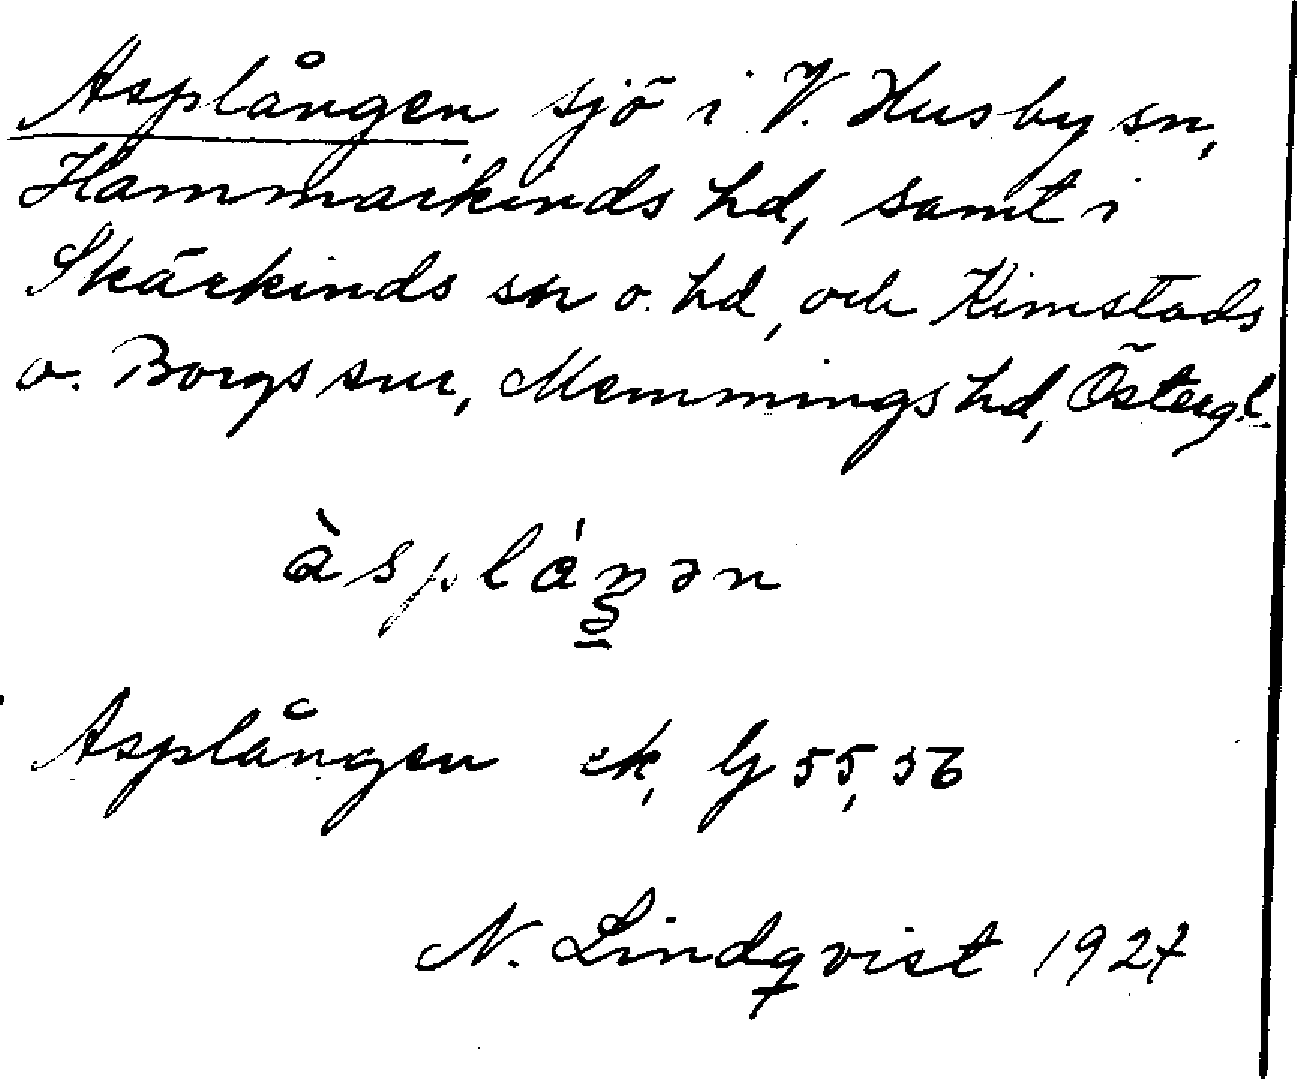 Asplången sjö i V. Husby sn,
Hammarkinds hd, samt i
Skärkinds sn o. hd, och Kimstads
o. Borgs snr, Memmings hd, Östergl.
àspláŋən
Asplången ek, G 55, 56
N. Lindqvist 1927